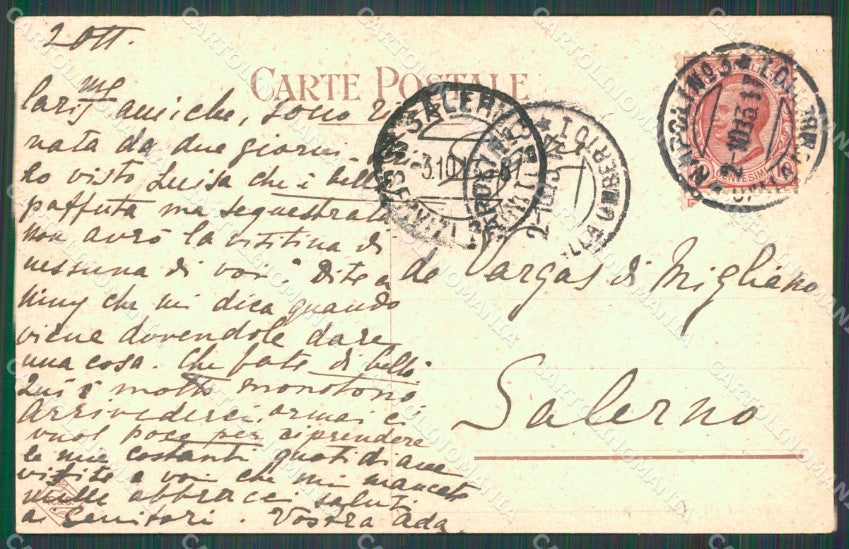 2 Ott.
CARTE POSTALE
Car.me amiche, sono ri
nata da due giorni
Ho visto Luisa che è bella
paffuta ma sequestrata
non avrò la visitina di
nessuna di voi? Dite a
Niny che mi dica quando
viene dovendole dare
una cosa. Che fate di bello
Qui è molto monotono
Arrivederci, ormai ci
vuol poco per riprendere
le mie costanti quotidiane
visite a voi che mi mancate
Mille abbracci saluti
ai Genitori. Vostra Ada
de Vargas di Migliano
Salerno
NAPOLI
2-10 13 17
SALERNO
3.10
2-10 13
CENTESIMI
CARTOLINOMANIA